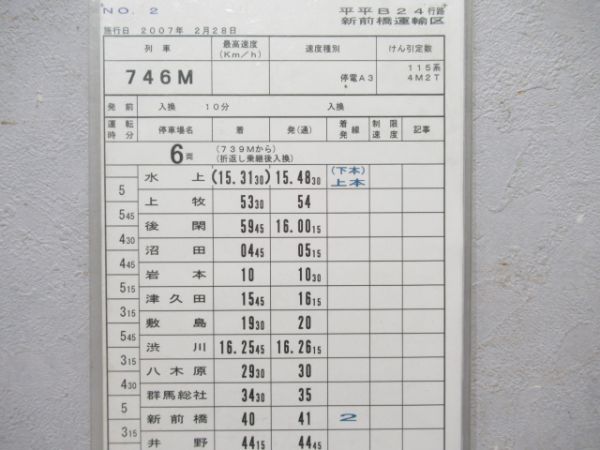 NO. 2 平平B24行路
新前橋運輸区
施行日 2007年 2月28日
列車 最高速度(Km/h) 速度種別 けん引定数
746M 停電A3 115系 4M2T
発前 入換 10分 入換
運転時分 停車場名 着 発(通) 着発線 制限速度 記事
6両 (739Mから)
(折返し乗継後入換)
水上 (15.31 30) 15.48 30 (下本) 上本
5
上牧 53 30 54
5 45
後閑 59 45 16.00 15
4 30
沼田 04 45 05 15
4 45
岩本 10 10 30
5 15
津久田 15 45 16 15
3 15
敷島 19 30 20
5 45
渋川 16.25 45 16.26 15
3 15
八木原 29 30 30
4 30
群馬総社 34 30 35
5
新前橋 40 41 2
3 15
井野 44 15 44 45